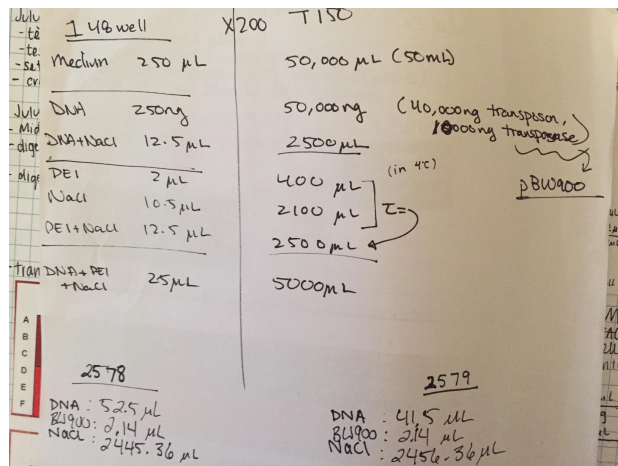 1 48 well X200 T150
Medium 250 µL 50,000 µL (50mL)
DNA 250ng 50,000ng (40,000ng transposon,
10000ng transposase)
DNA+NaCl 12.5 µL 2500µL
PEI 2 µL 400 µL (in 4°C)
pBW900
NaCl 10.5µL 2100 µL
PEI+NaCl 12.5 µL 2500µL
DNA+PEI
+NaCl 25µL 5000µL
2578
DNA : 52.5 µL
BW900: 2.14 µL
NaCl : 2445.36 µL
2579
DNA : 41.5 µL
BW900 : 2.14 µL
NaCl : 2456.36µL
July
July
A
B
C
D
E
F